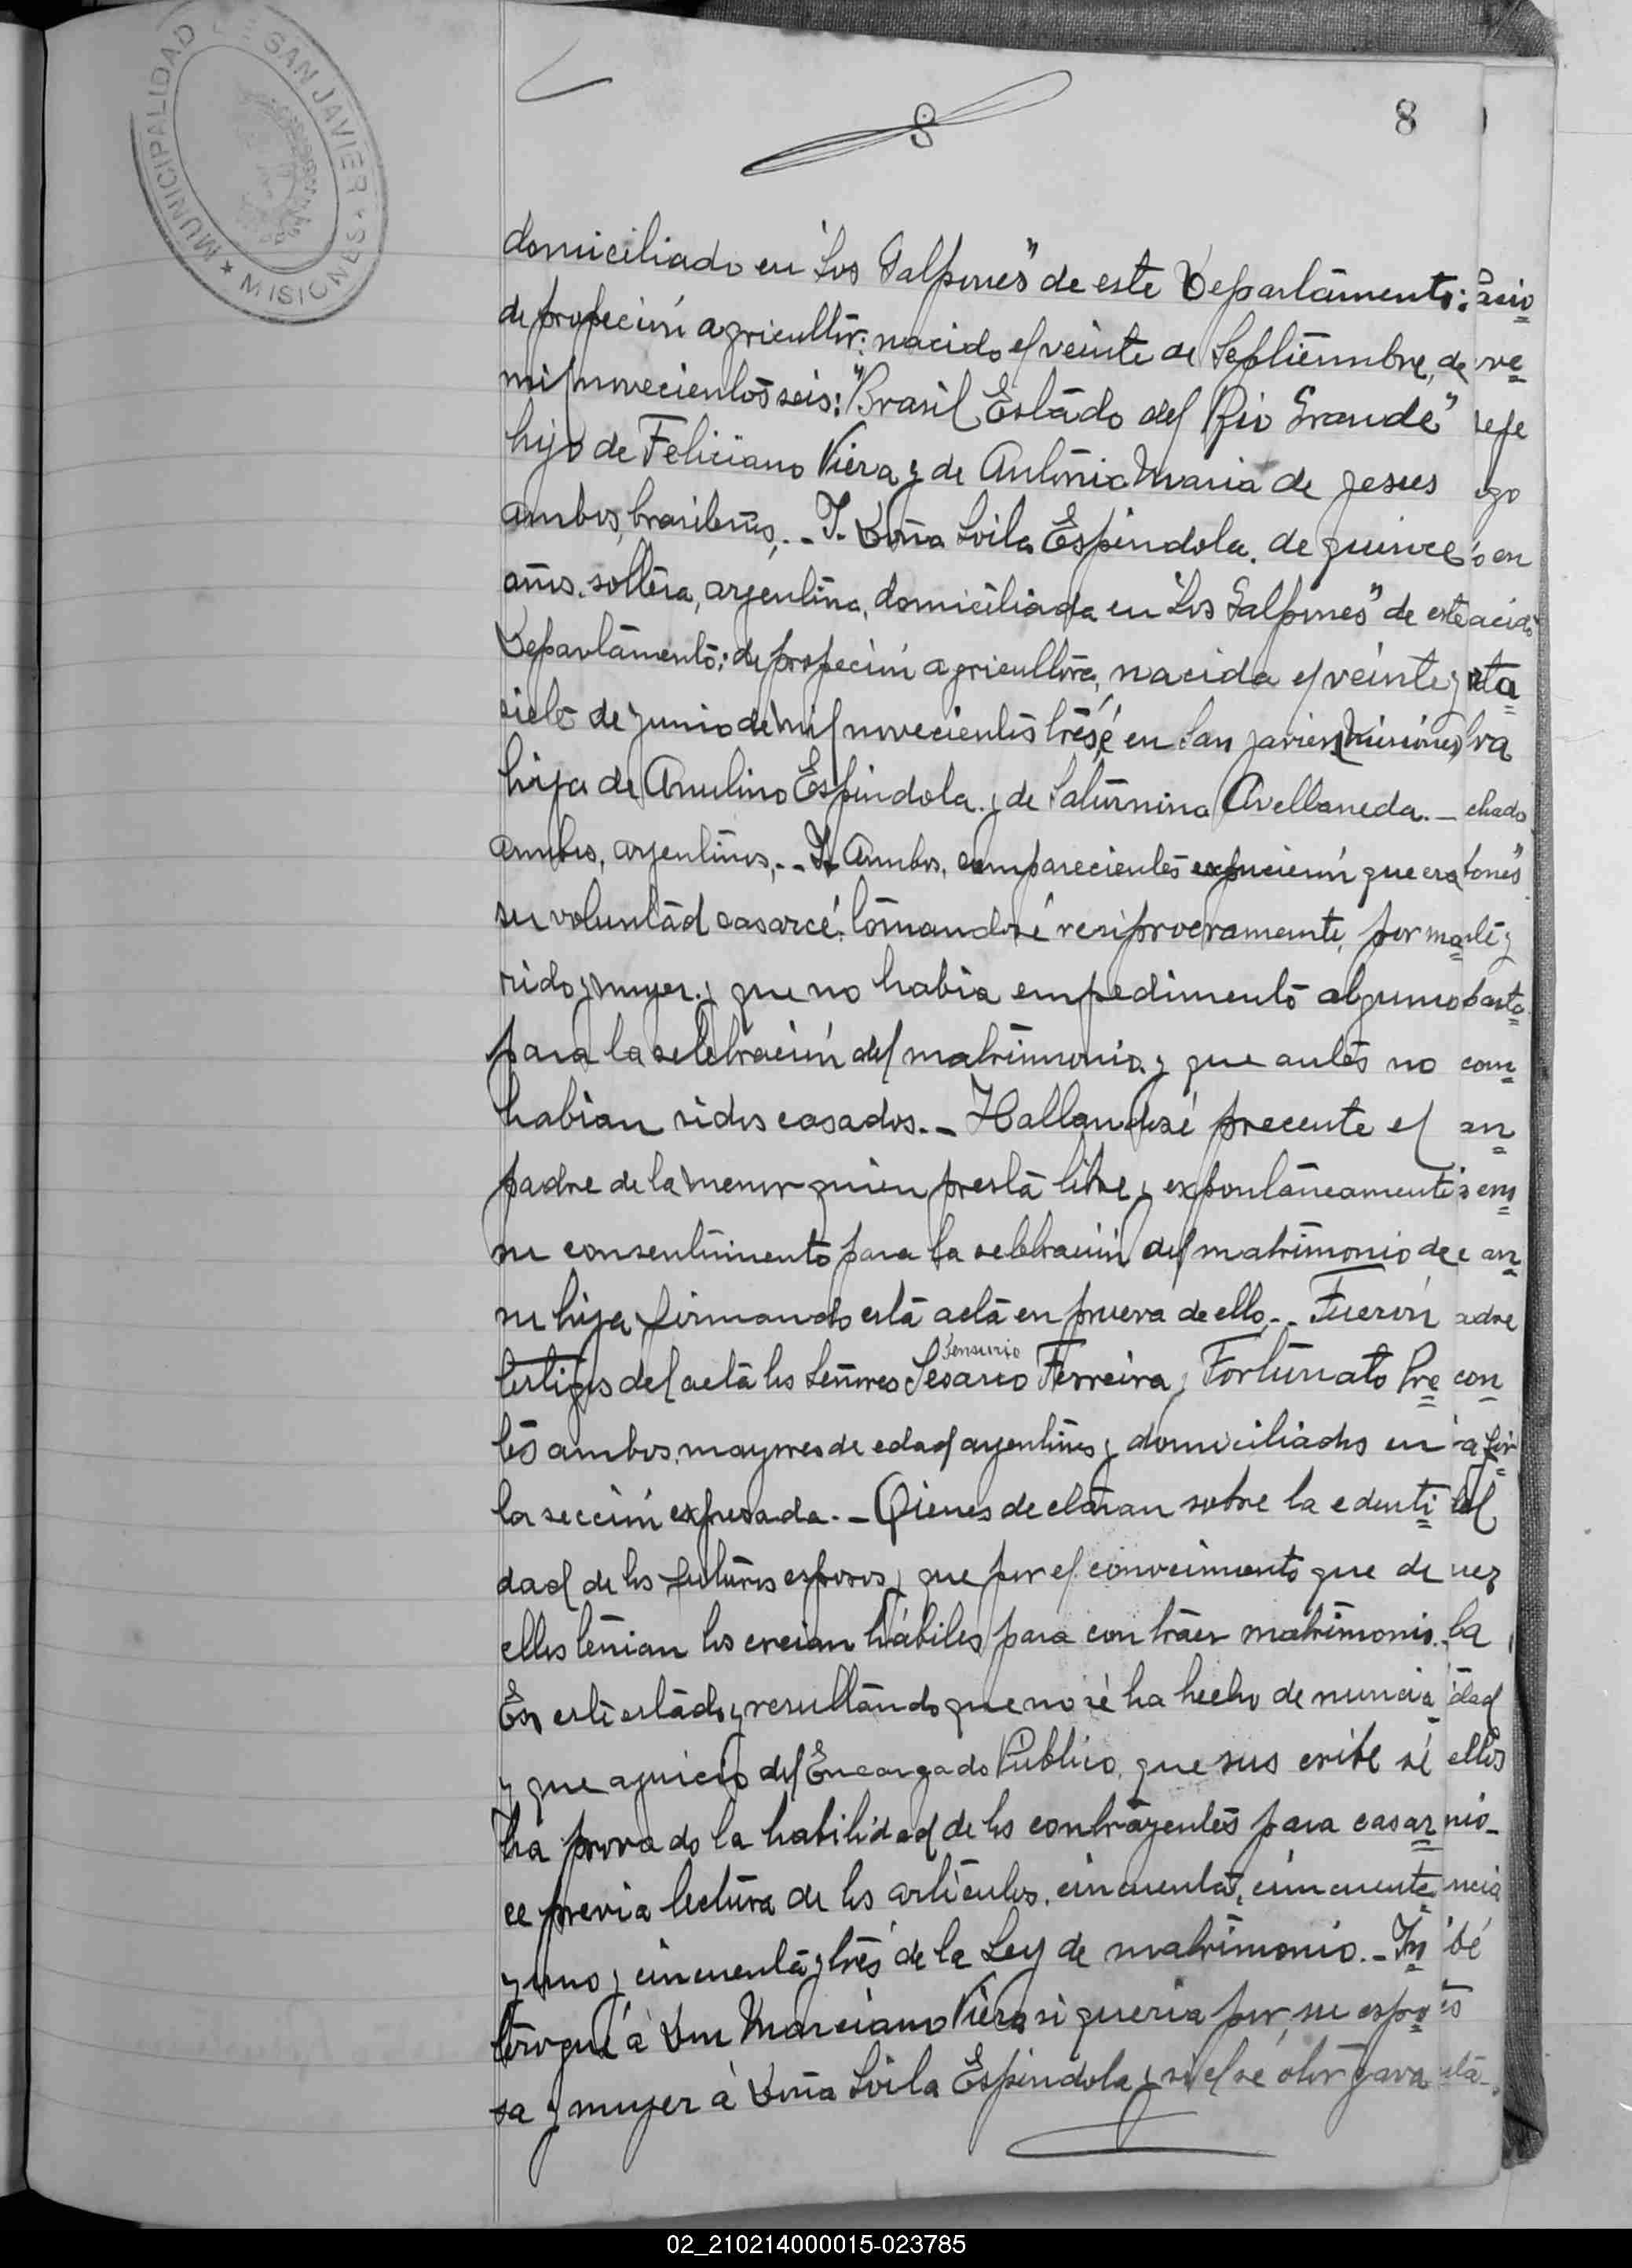 MUNICIPALIDAD DE SAN JAVIER
★ MISIONES
8
8
domiciliado en "Los Galpones" de este Departamento:
de profeción agricultor: nacido el veinte de Septiembre, de
mil novecientos seis: "Brasil Estado del Rio Grande"
hijo de Feliciano Viera y de Antonia Maria de Jesus
ambos, brasileños,.- Y. Doña Loila Espindola. de quince
años. soltera, argentina, domiciliada en "Los Galpones" de este
Departamento; de profeción agricultora, nacida el veinte y
siete de junio de mil novecientos trese, en San Javier (Misiones)
hija de Anulino Espindola. y de Saturnina Avellaneda.-
ambos, argentinos,.- Y Ambos, comparecientes expucierón que era
su voluntad casarcé. tomandosé resiprocramente, por ma
rido y muger. y que no habia empedimento alguno
para la selebración del matrimonio. y que antes no
habian sidos casados.- Hallandosé precente el
padre de la menor quien presta libre y expontaneamente
su consentimiento para la selebración del matrimonio de
su hija, firmando esta acta en prueva de ello.- Fuerón
testigos del acta los Señores Sesario Ferreira y Fortunato Pre
tes ambos, mayores de edad argentinos y domiciliados en
la sección expresada.- Qienes declaran sobre la edenti
dad de los futuros esposos y que por el conocimiento que de
ellos tenian los creian hábiles para contraer matrimonio.
En este estado y resultando que no sé ha hecho denuncia
y que ajuicio del Encargado Público, que suscribe sé
ha provado la habilidad de los contrayentes para casar
ce previa lectura de los articulos. cincuenta, cincuenta
y uno y cincuenta y tres de la Ley de matrimonio.- In
terogué á Don Marciano Viera si queria por su espo
sa y muger á Doña Loila Espindola y si el sé otorgava
02_210214000015-023785